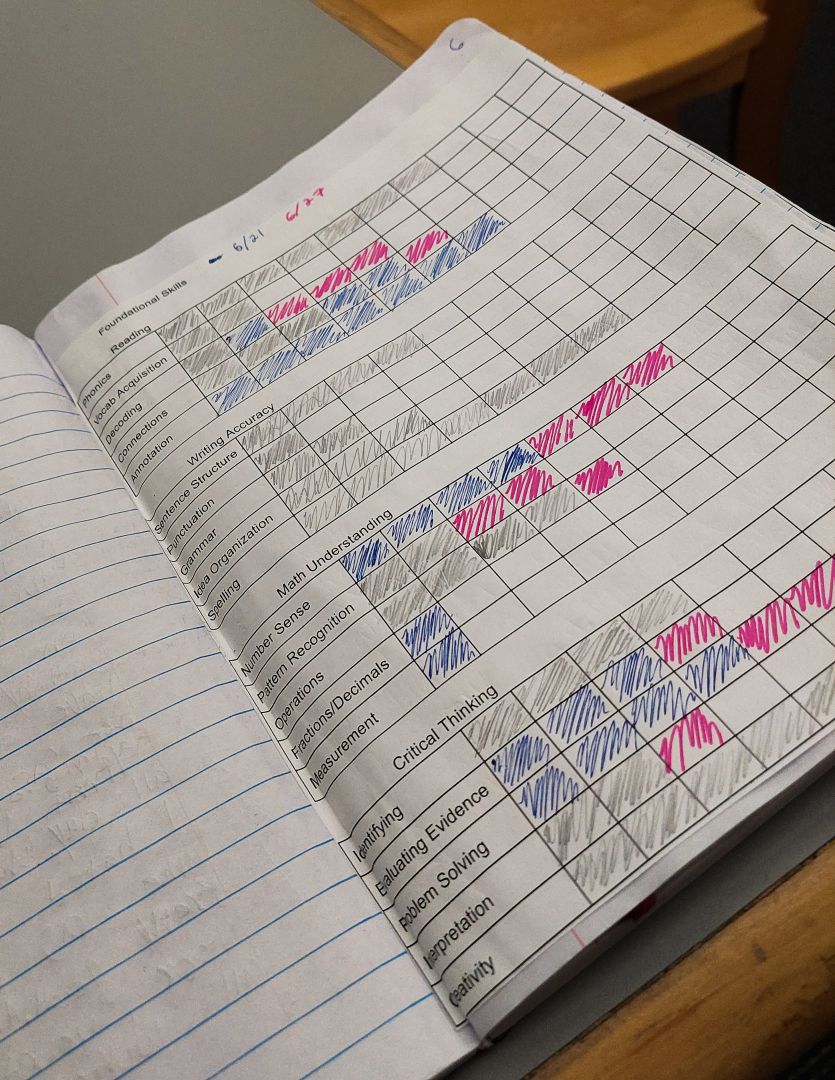 6
6/21 6/27
Foundational Skills
Reading
Phonics
Vocab Acquisition
Decoding
Connections
Annotation
Writing Accuracy
Sentence Structure
Punctuation
Grammar
Idea Organization
Spelling
Math Understanding
Number Sense
Pattern Recognition
Operations
Fractions/Decimals
Measurement
Critical Thinking
Identifying
Evaluating Evidence
Problem Solving
Interpretation
Creativity